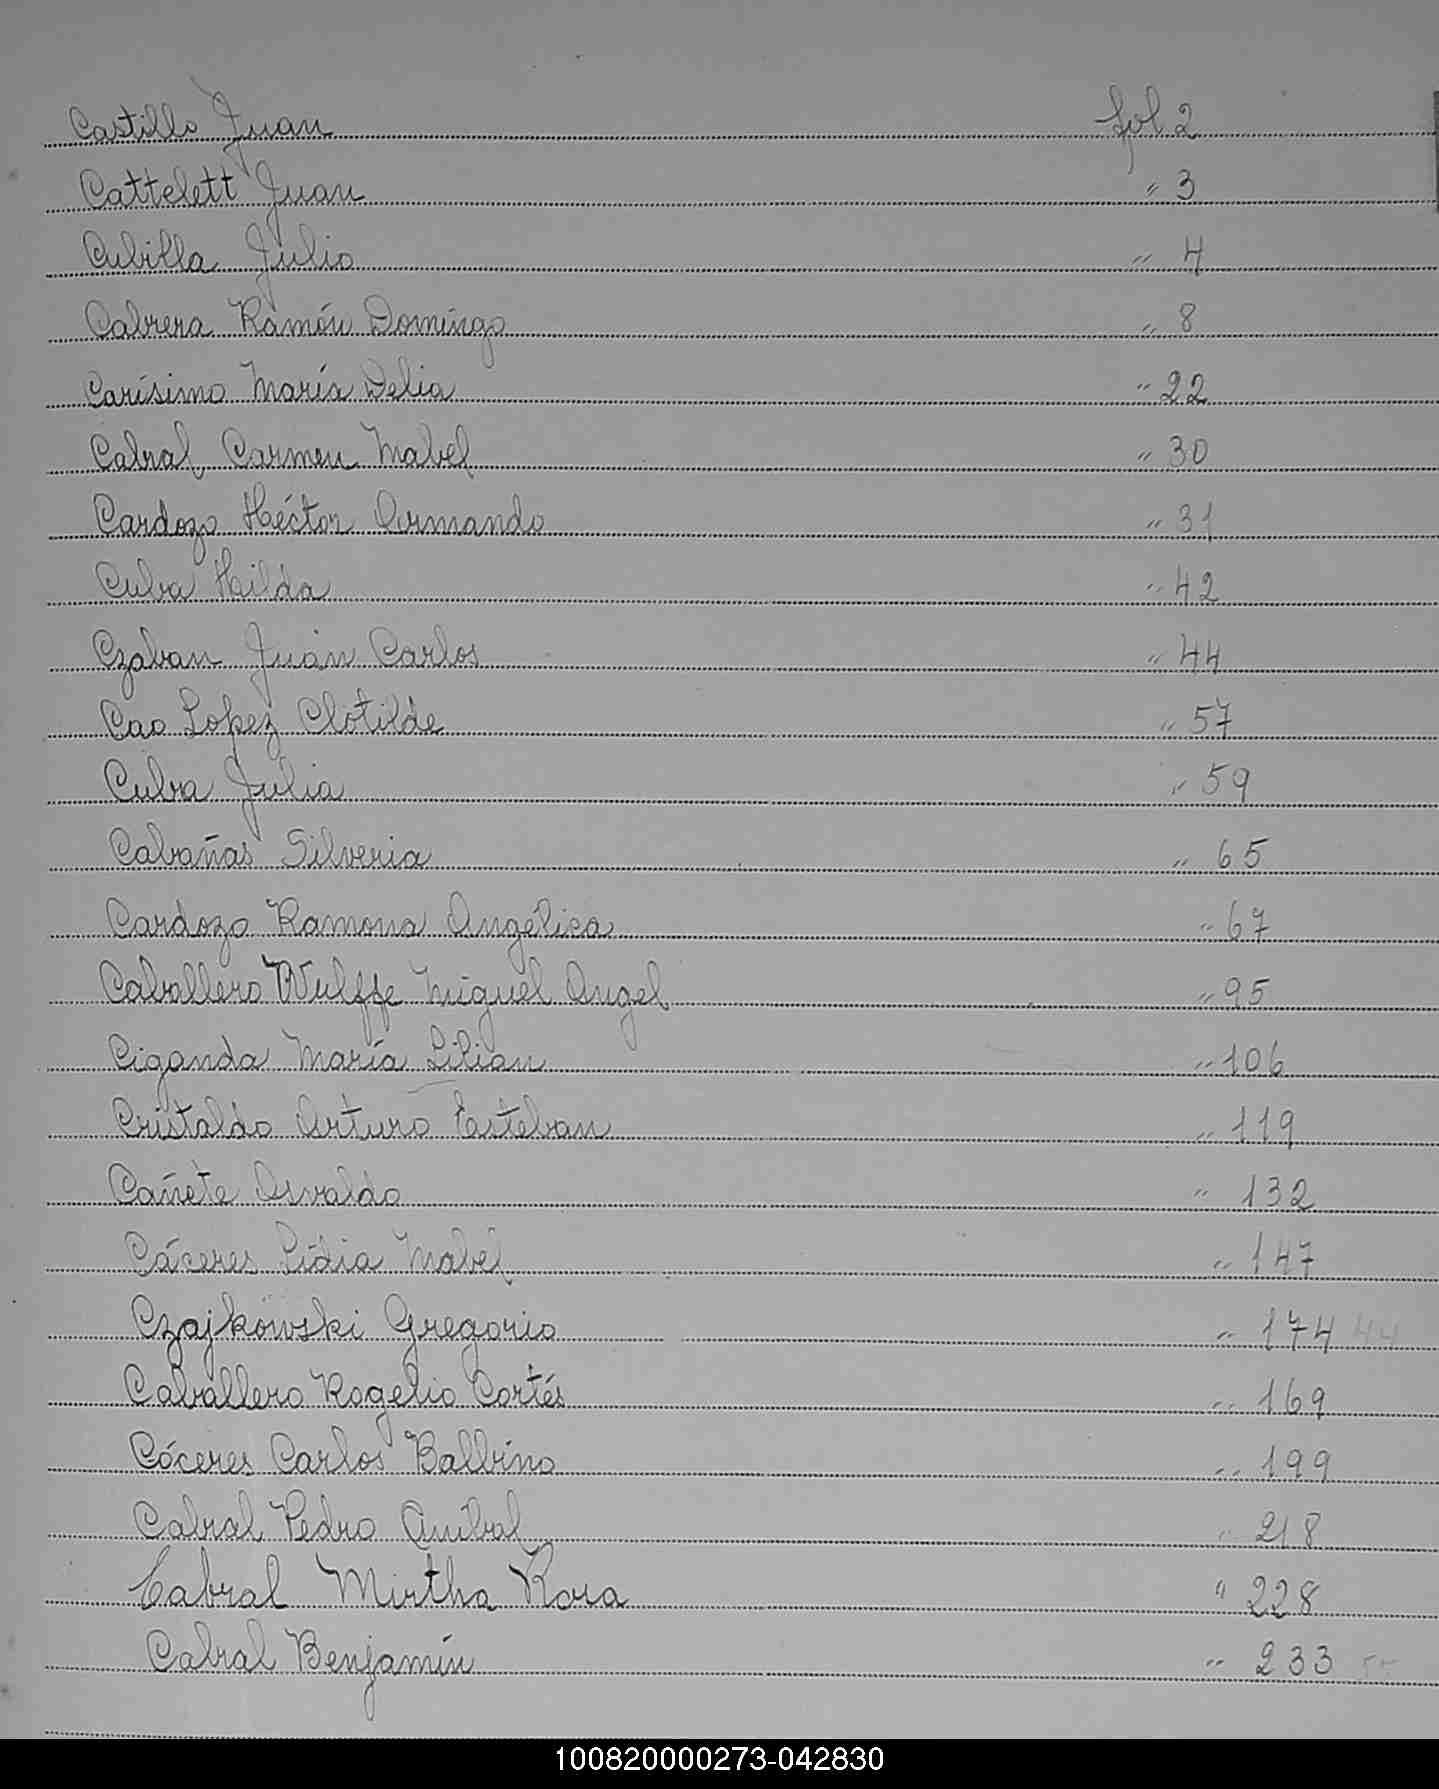 Castillo Juan fol 2
Cattelett Juan " 3
Cubilla Julio " 4
Cabrera Ramón Domingo " 8
Carísimo María Delia " 22
Cabral Carmen Mabel " 30
Cardozo Héctor Armando " 31
Cuba Hilda " 42
Czaban Juan Carlos " 44
Cao Lopez Clotilde " 57
Cubra Julia " 59
Cabañas Silveria " 65
Cardozo Ramona Angélica " 67
Caballero Wulffe Miguel Angel " 95
Ciganda María Lilian " 106
Cristaldo Arturo Esteban " 119
Cañete Osvaldo " 132
Cáceres Lidia Mabel " 147
Czajkowski Gregorio " 174 44
Caballero Rogelio Cortés " 169
Cáceres Carlos Balbino " 199
Cabral Pedro Anibal " 218
Cabral Mirtha Rosa " 228
Cabral Benjamín " 233
100820000273-042830